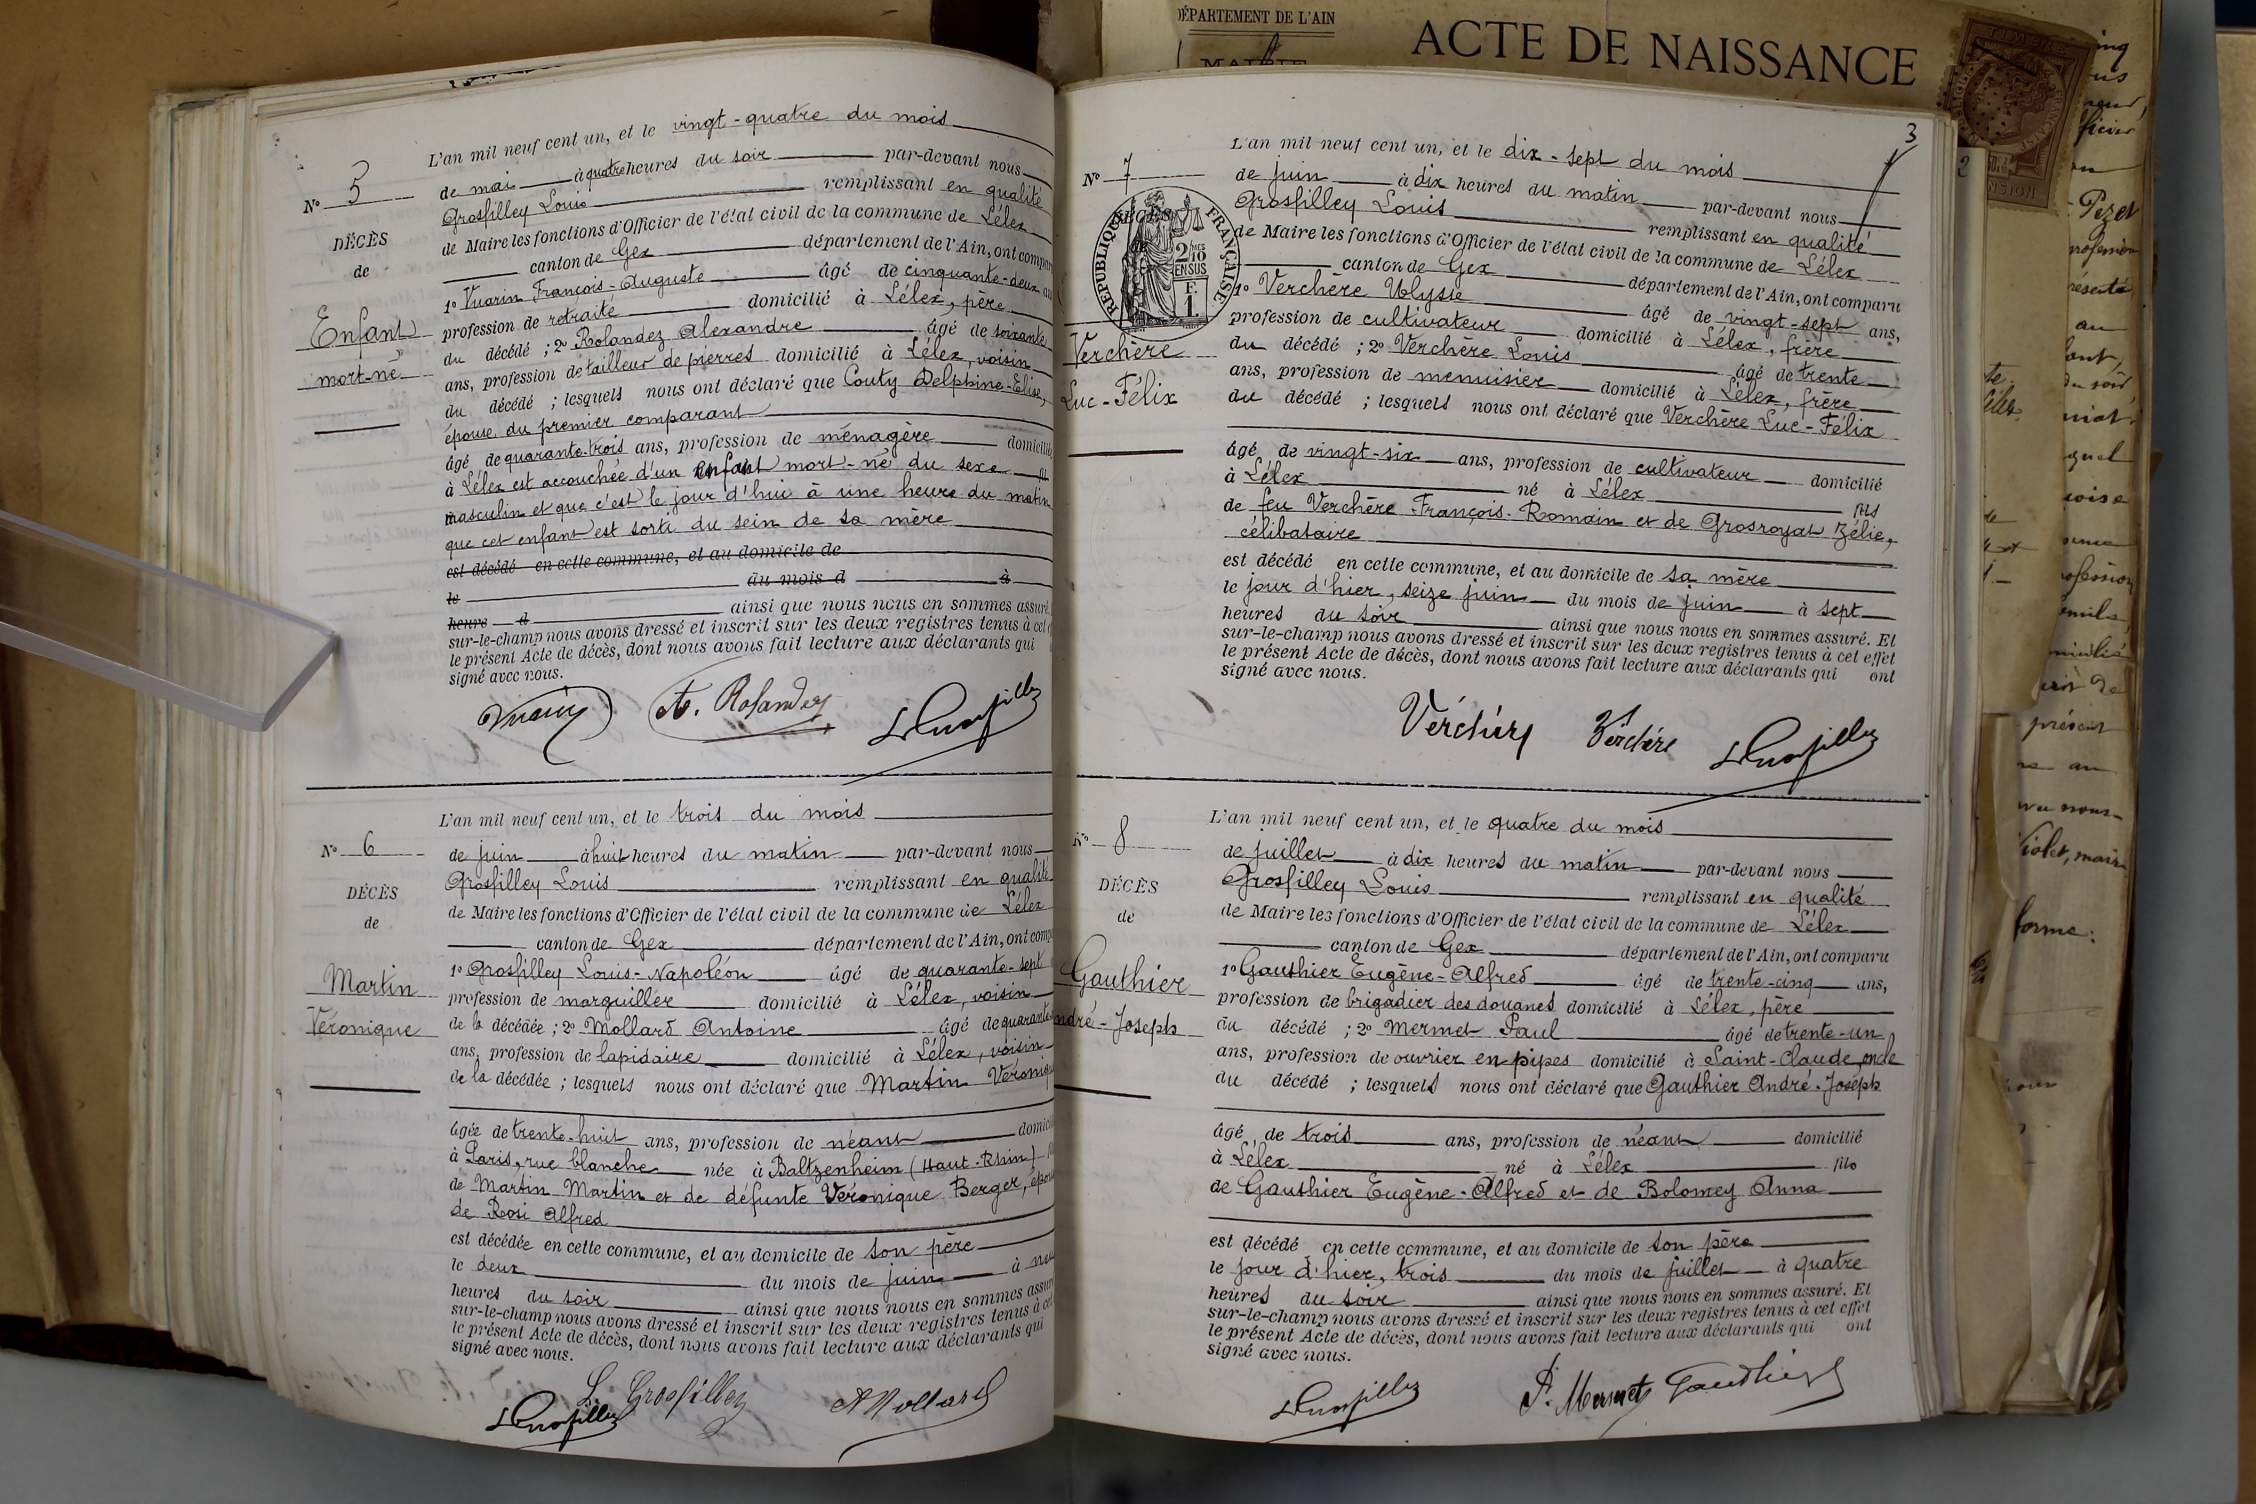 N° 5
DÉCÈS
de
Enfant
mort-né
L'an mil neuf cent un, et le vingt-quatre du mois
de mai à quatre heures du soir par-devant nous
Grosfilley Louis remplissant en qualité
de Maire les fonctions d'Officier de l'état civil de la commune de Lélex
canton de Gex département de l'Ain, ont compar
1° Vuarin François-Auguste âgé de cinquante-deux
profession de retraité domicilié à Lélex, père
du décédé ; 2° Rolandez Alexandre âgé de soixante
ans, profession de tailleur de pierres domicilié à Lélex, voisin
du décédé ; lesquels nous ont déclaré que Couty Delphine-Elise,
épouse du premier comparant
âgé de quarante-trois ans, profession de ménagère domicilié
à Lélex est accouchée d'un enfant mort-né du sexe
masculin et que c'est le jour d'hui à une heure du matin
que cet enfant est sorti du sein de sa mère
est décédé en cette commune, et au domicile de
le du mois d à
heure d ainsi que nous nous en sommes assuré.
sur-le-champ nous avons dressé et inscrit sur les deux registres tenus à cet
le présent Acte de décès, dont nous avons fait lecture aux déclarants qui
signé avec nous.
Vuarin A. Rolandez L Grosfilley
N° 6
DÉCÈS
de
Martin
Véronique
L'an mil neuf cent un, et le trois du mois
de juin à huit heures du matin par-devant nous
Grosfilley Louis remplissant en qualité
de Maire les fonctions d'Officier de l'état civil de la commune de Lélex
canton de Gex département de l'Ain, ont comp
1° Grosfilley Louis-Napoléon âgé de quarante-sept
profession de marguiller domicilié à Lélex, voisin
de la décédée ; 2° Mollard Antoine âgé de quarante
ans, profession de lapidaire domicilié à Lélex, voisin
de la décédée ; lesquels nous ont déclaré que Martin Véroniq
âgée de trente-huit ans, profession de néant domici
à Paris, rue blanche née à Baltzenheim (Haut-Rhin)
de Martin Martin et de défunte Véronique Berger, épou
de Rosi Alfred
est décédée en cette commune, et au domicile de son père
le deux du mois de juin à neu
heures du soir ainsi que nous nous en sommes assuré
sur-le-champ nous avons dressé et inscrit sur les deux registres tenus à cet
le présent Acte de décès, dont nous avons fait lecture aux déclarants qui
signé avec nous.
L. Grosfilley A Mollard
L Grosfilley
DÉPARTEMENT DE L'AIN
MAIRIE
ACTE DE NAISSANCE
3
N° 7
DÉCÈS
RÉPUBLIQUE FRANÇAISE
2/10 EN SUS
F. 1.
Verchère
Luc-Félix
L'an mil neuf cent un, et le dix-sept du mois
de juin à dix heures du matin par-devant nous
Grosfilley Louis remplissant en qualité
de Maire les fonctions d'Officier de l'état civil de la commune de Lélex
canton de Gex département de l'Ain, ont comparu
1° Verchère Ulysse âgé de vingt-sept ans,
profession de cultivateur domicilié à Lélex, frère
du décédé ; 2° Verchère Louis âgé de trente
ans, profession de menuisier domicilié à Lélex, frère
du décédé ; lesquels nous ont déclaré que Verchère Luc-Félix
âgé de vingt-six ans, profession de cultivateur domicilié
à Lélex né à Lélex fils
de feu Verchère François-Romain et de Grosroyat Zélie,
célibataire
est décédé en cette commune, et au domicile de sa mère
le jour d'hier, seize juin du mois de juin à sept
heures du soir ainsi que nous nous en sommes assuré. Et
sur-le-champ nous avons dressé et inscrit sur les deux registres tenus à cet effet
le présent Acte de décès, dont nous avons fait lecture aux déclarants qui ont
signé avec nous.
Verchère Verchère L Grosfilley
N° 8
DÉCÈS
de
Gauthier
ndré-Joseph
L'an mil neuf cent un, et le quatre du mois
de juillet à dix heures du matin par-devant nous
Grosfilley Louis remplissant en qualité
de Maire les fonctions d'Officier de l'état civil de la commune de Lélex
canton de Gex département de l'Ain, ont comparu
1° Gauthier Eugène-Alfred âgé de trente-cinq ans,
profession de brigadier des douanes domicilié à Lélex, père
du décédé ; 2° Mermet Paul âgé de trente-un
ans, profession de ouvrier en pipes domicilié à Saint-Claude, oncle
du décédé ; lesquels nous ont déclaré que Gauthier André-Joseph
âgé de trois ans, profession de néant domicilié
à Lélex né à Lélex fils
de Gauthier Eugène-Alfred et de Bolomey Anna
est décédé en cette commune, et au domicile de son père
le jour d'hier, trois du mois de juillet à quatre
heures du soir ainsi que nous nous en sommes assuré. Et
sur-le-champ nous avons dressé et inscrit sur les deux registres tenus à cet effet
le présent Acte de décès, dont nous avons fait lecture aux déclarants qui ont
signé avec nous.
L Grosfilley P. Mermet Gauthier
Pezet
présent
Violet, maire
forme: